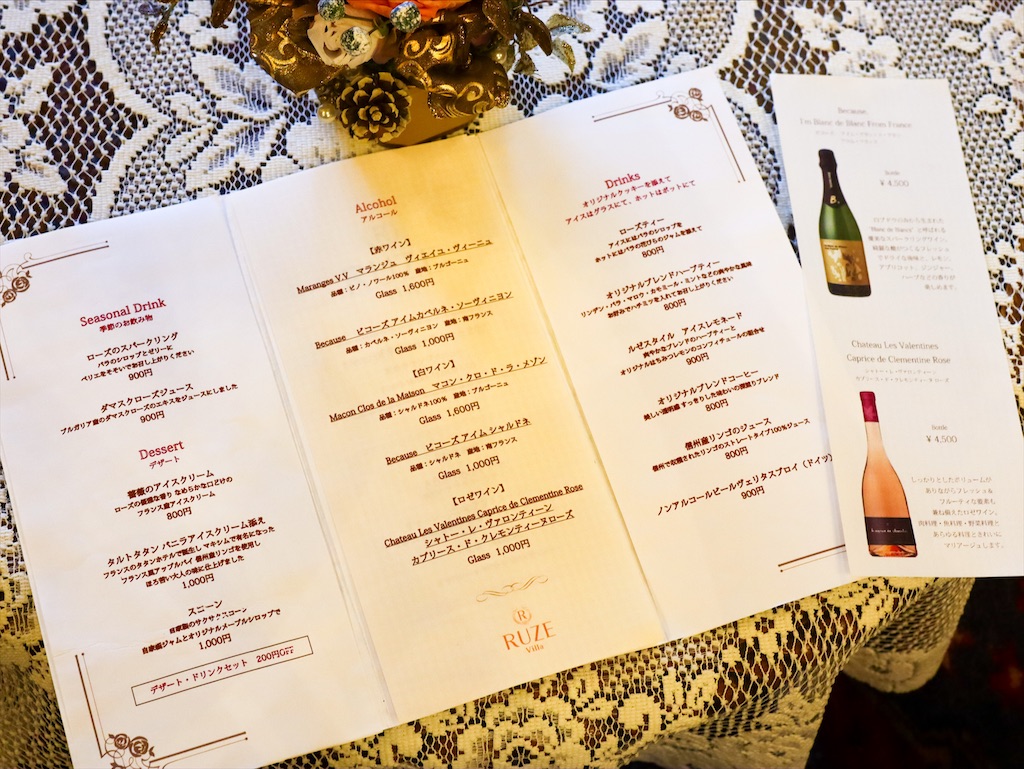 Seasonal Drink
季節のお飲み物
ローズのスパークリング
バラのシロップとゼリーに
ペリエをそそいでお召し上がりください
900円
ダマスクローズジュース
ブルガリア産のダマスクローズのエキスをジュースにしました
900円
Dessert
デザート
薔薇のアイスクリーム
ローズの優雅な香り なめらかな口どけの
フランス産アイスクリーム
800円
タルトタタン バニラアイスクリーム添え
フランスのタタンホテルで誕生し マキシムで有名になった
フランス風アップルパイ 信州産リンゴを使用し
ほろ苦い大人の味に仕上げました
1,000円
スコーン
自家製のサクサクスコーン
自家製ジャムとオリジナルメープルシロップで
1,000円
デザート・ドリンクセット 200円OFF
Alcohol
アルコール
【赤ワイン】
Maranges V.V マランジュ ヴィエイユ・ヴィーニュ
品種：ピノ・ノワール100% 産地：ブルゴーニュ
Glass 1,600円
Because ビコーズ アイム カベルネ・ソーヴィニヨン
品種：カベルネ・ソーヴィニヨン 産地：南フランス
Glass 1,000円
【白ワイン】
Macon Clos de la Maison マコン・クロ・ド・ラ・メゾン
品種：シャルドネ100% 産地：ブルゴーニュ
Glass 1,600円
Because ビコーズ アイム シャルドネ
品種：シャルドネ 産地：南フランス
Glass 1,000円
【ロゼワイン】
Chateau Les Valentines Caprice de Clementine Rose
シャトー・レ・ヴァロンティーン
カプリース・ド・クレモンティーヌローズ
Glass 1,000円
R
RUZE
Villa
Drinks
オリジナルクッキーを添えて
アイスはグラスにて、ホットはポットにて
ローズティー
アイスにはバラのシロップを
ホットにはバラの花びらのジャムを添えて
800円
オリジナルブレンドハーブティー
リンデン・バラ・マロウ・カモミール・ミントなどの爽やかな風味
お好みでハチミツを入れてお召し上がりください
800円
ルゼスタイル アイスレモネード
爽やかなブレンドのハーブティーと
オリジナルはちみつレモンのコンフィチュールの組合せ
900円
オリジナルブレンドコーヒー
美しい透明感 すっきりした味わいの深煎りブレンド
800円
信州産リンゴのジュース
信州で収穫されたリンゴのストレートタイプ100%ジュース
800円
ノンアルコールビールヴェリタスブロイ（ドイツ）
900円
Because,
I'm Blanc de Blanc From France
Bottle
¥4,500
白ブドウのみから生まれた
"Blanc de Blancs"と呼ばれる
優美なスパークリングワイン。
綺麗な酸がつくるフレッシュ
でドライな後味と、レモン、
アプリコット、ジンジャー、
ハーブなどの香りが
楽しめます。
Chateau Les Valentines
Caprice de Clementine Rose
シャトー・レ・ヴァロンティーン
カプリース・ド・クレモンティーヌ・ローズ
Bottle
¥4,500
しっかりとしたボリュームが
ありながらフレッシュ＆
フルーティな要素も
兼ね備えたロゼワイン。
肉料理・魚料理・野菜料理と
あらゆる料理ときれいに
マリアージュします。